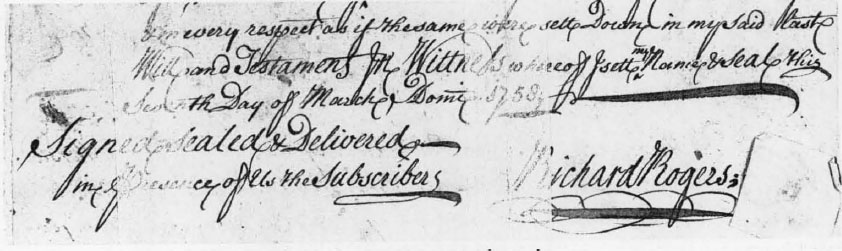 & in every respect as if the same were sett Down in my said Last
Will and Testament In Wittness whereof I sett my Name & Seal this
Seventh Day of March Domi 1758
Signed Sealed & Delivered
in ye Presence of Us the Subscribers
Richard Rogers